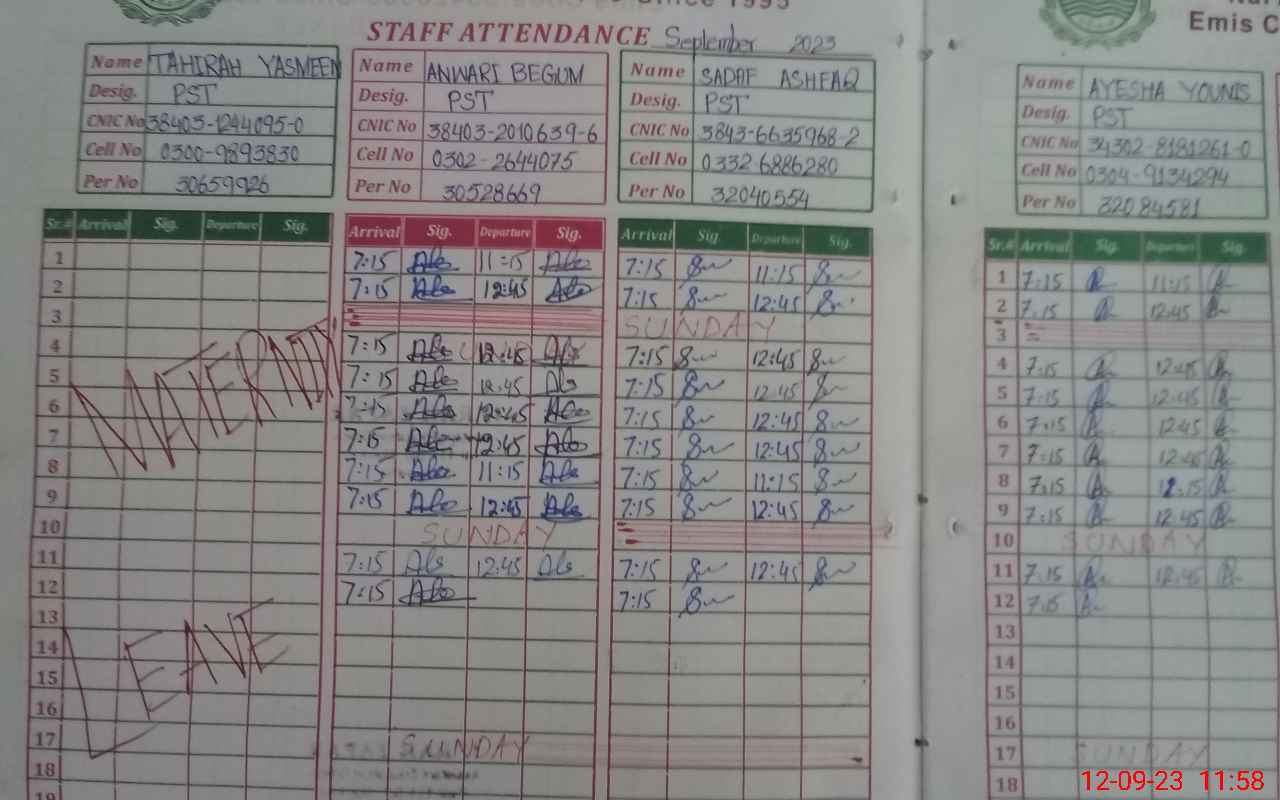 Since 1995
STAFF ATTENDANCE September 2023
Emis C
Name TAHIRAH YASMEEN
Desig. PST
CNIC No 38403-1244095-0
Cell No 0300-9893830
Per No 30659926
Name ANWARI BEGUM
Desig. PST
CNIC No 38403-2010639-6
Cell No 0302-2644075
Per No 30528669
Name SADAF ASHFAQ
Desig. PST
CNIC No 3843-6635968-2
Cell No 0332-6886280
Per No 32040554
Name AYESHA YOUNIS
Desig. PST
CNIC No 34302-8181261-0
Cell No 0304-9134294
Per No 32084581
Sr.# Arrival Sig. Departure Sig. Arrival Sig. Departure Sig. Arrival Sig. Departure Sig. Sr.# Arrival Sig. Departure Sig.
1 7:15 11:15 7:15 11:15 1 7:15 11:15
2 7:15 12:45 7:15 12:45 2 7:15 12:45
3 SUNDAY 3
4 7:15 12:45 7:15 12:45 4 7:15 12:45
5 7:15 12:45 7:15 12:45 5 7:15 12:45
6 7:15 12:45 7:15 12:45 6 7:15 12:45
7 7:15 12:45 7:15 12:45 7 7:15 12:45
8 7:15 11:15 7:15 11:15 8 7:15 12:15
9 7:15 12:45 7:15 12:45 9 7:15 12:45
10 SUNDAY 10 SUNDAY
11 7:15 12:45 7:15 12:45 11 7:15 12:45
12 7:15 7:15 12 7:15
13 13
14 14
15 15
16 16
17 SUNDAY 17 SUNDAY
18 18
19
MATERNITY
LEAVE
12-09-23 11:58